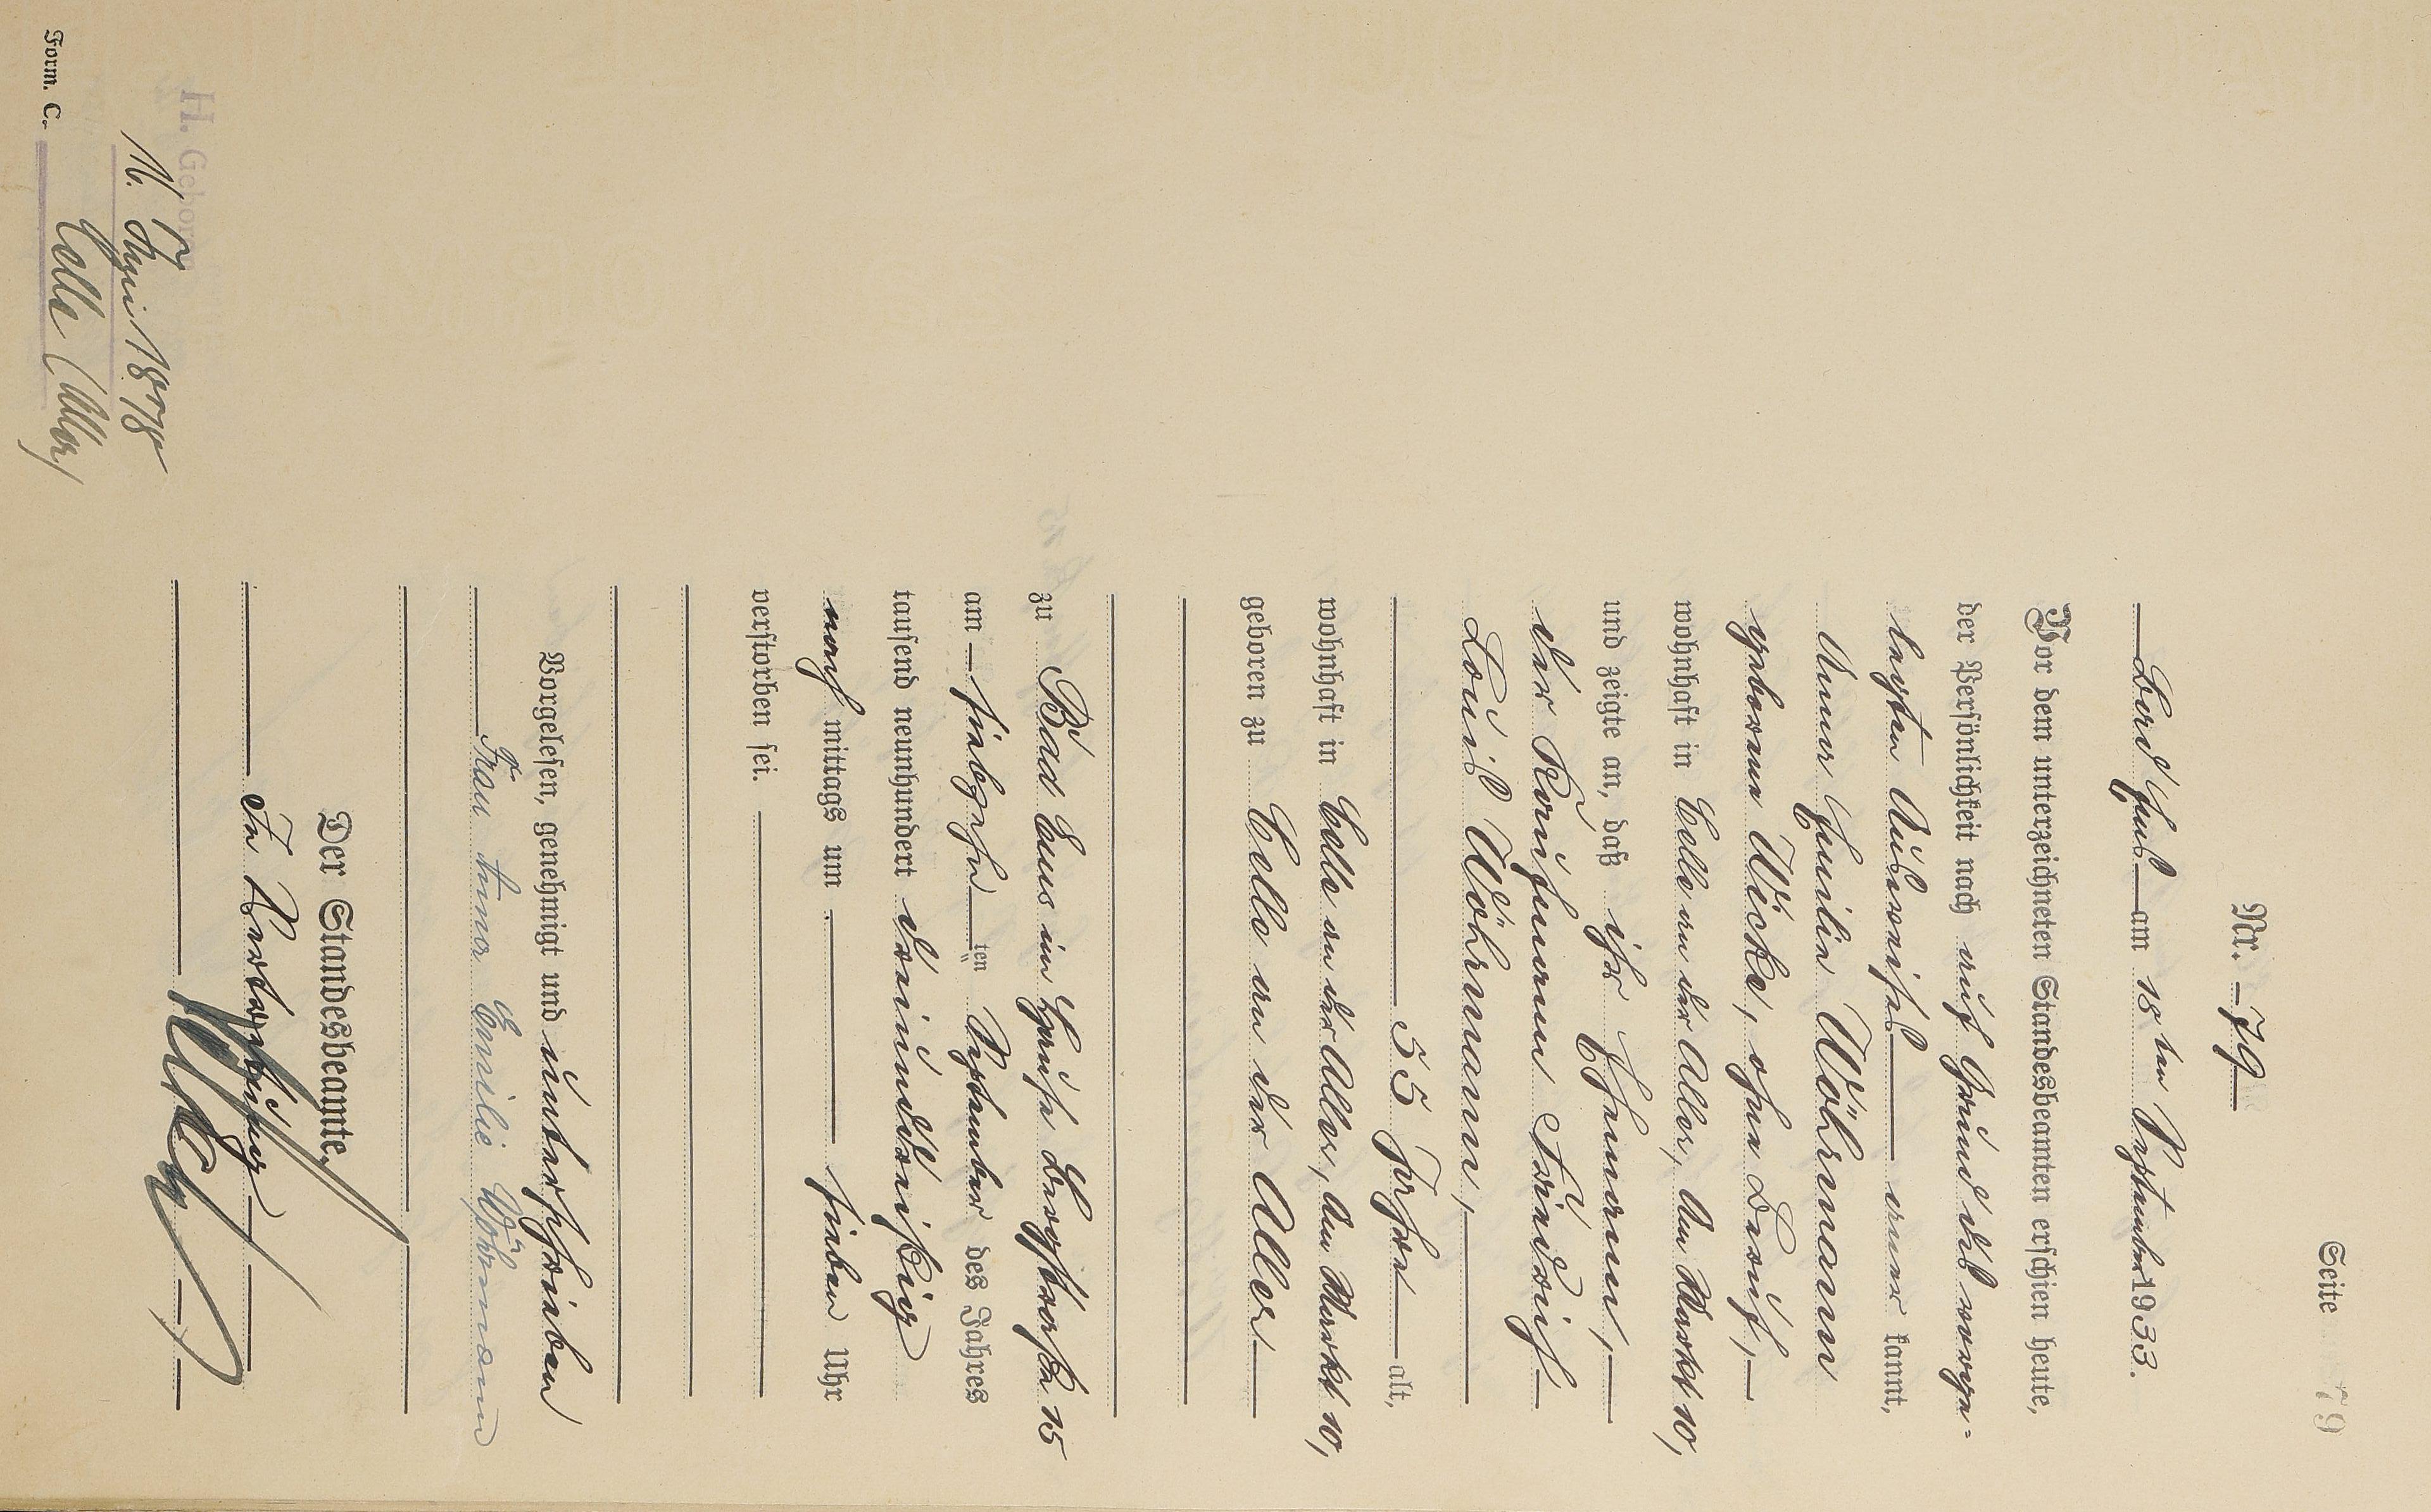 Seite 79
Nr. 79
Bad Ems am 18ten September 1933.
Vor dem unterzeichneten Standesbeamten erschien heute,
der Persönlichkeit nach auf Grund des vorge-
legten Ausweises aner kannt,
Anna Emilie Wöhrmann
geborene Wicke, ohne Beruf,
wohnhaft in Celle an der Aller, Am Markt 10,
und zeigte an, daß ihr Ehemann,
der Kaufmann Friedrich
Louis Wöhrmann,
55 Jahre alt,
wohnhaft in Celle an der Aller, Am Markt 10,
geboren zu Celle an der Aller
zu Bad Ems im Hause Bergstraße 15
am siebzehn ten September des Jahres
tausend neunhundert dreiunddreißig
nach mittags um sieben Uhr
verstorben sei.
Vorgelesen, genehmigt und unterschrieben
Frau Anna Emilie Wöhrmann
Der Standesbeamte.
In Vertretung
H. Geboren
17. 1878
Celle (Aller)
Form. C.